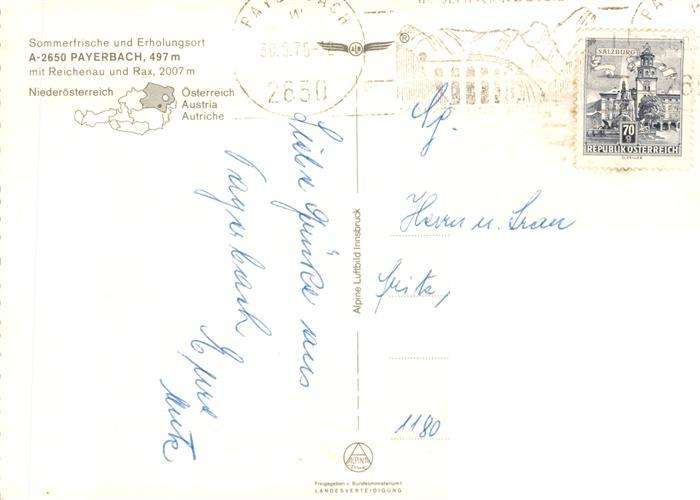 Sommerfrische und Erholungsort
A-2650 PAYERBACH, 497 m
mit Reichenau und Rax, 2007 m
Niederösterreich
Österreich
Austria
Autriche
PAYERBACH
2650
SALZBURG
70
REPUBLIK ÖSTERREICH
Liebe Grüße aus
Payerbach
Eure
Alpine Luftbild Innsbruck
Sg.
Herrn u. Frau
1180
ALPINA
Freigegeben v. Bundesministerium f.
LANDESVERTEIDIGUNG